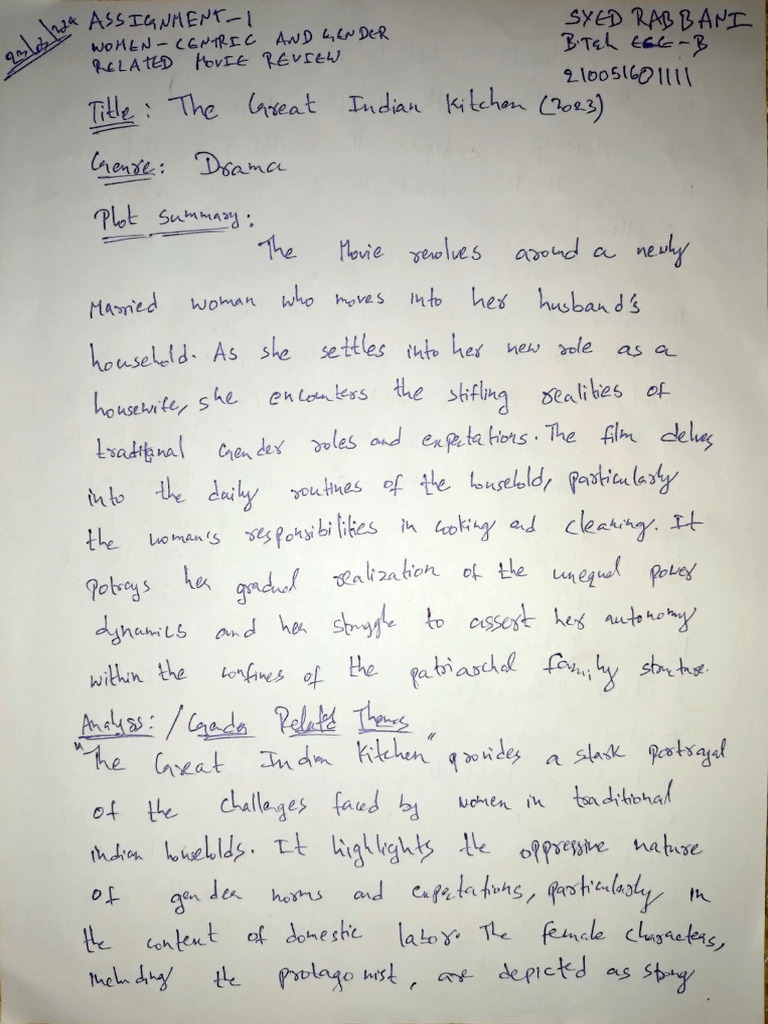 23/03/2024
ASSIGNMENT-1
WOMEN-CENTRIC AND GENDER
RELATED MOVIE REVIEW
SYED RABBANI
BTech ECE-B
210051601111
Title: The Great Indian Kitchen (2023)
Genre: Drama
Plot Summary:
The Movie revolves around a newly
Married woman who moves into her husband's
household. As she settles into her new role as a
housewife, she encounters the stifling realities of
traditional Gender roles and expectations. The film delves
into the daily routines of the household, particularly
the woman's responsibilities in cooking and cleaning. It
Potrays her gradual realization of the unequal power
dynamics and her struggle to assert her autonomy
within the confines of the patriarchal family structure.
Analysis: / Gender Related Themes
"The Great Indian Kitchen" provides a stark portrayal
of the challenges faced by women in traditional
indian households. It highlights the oppressive nature
of gender norms and expectations, particularly in
the context of domestic labor. The female characters,
including the protagonist, are depicted as strong